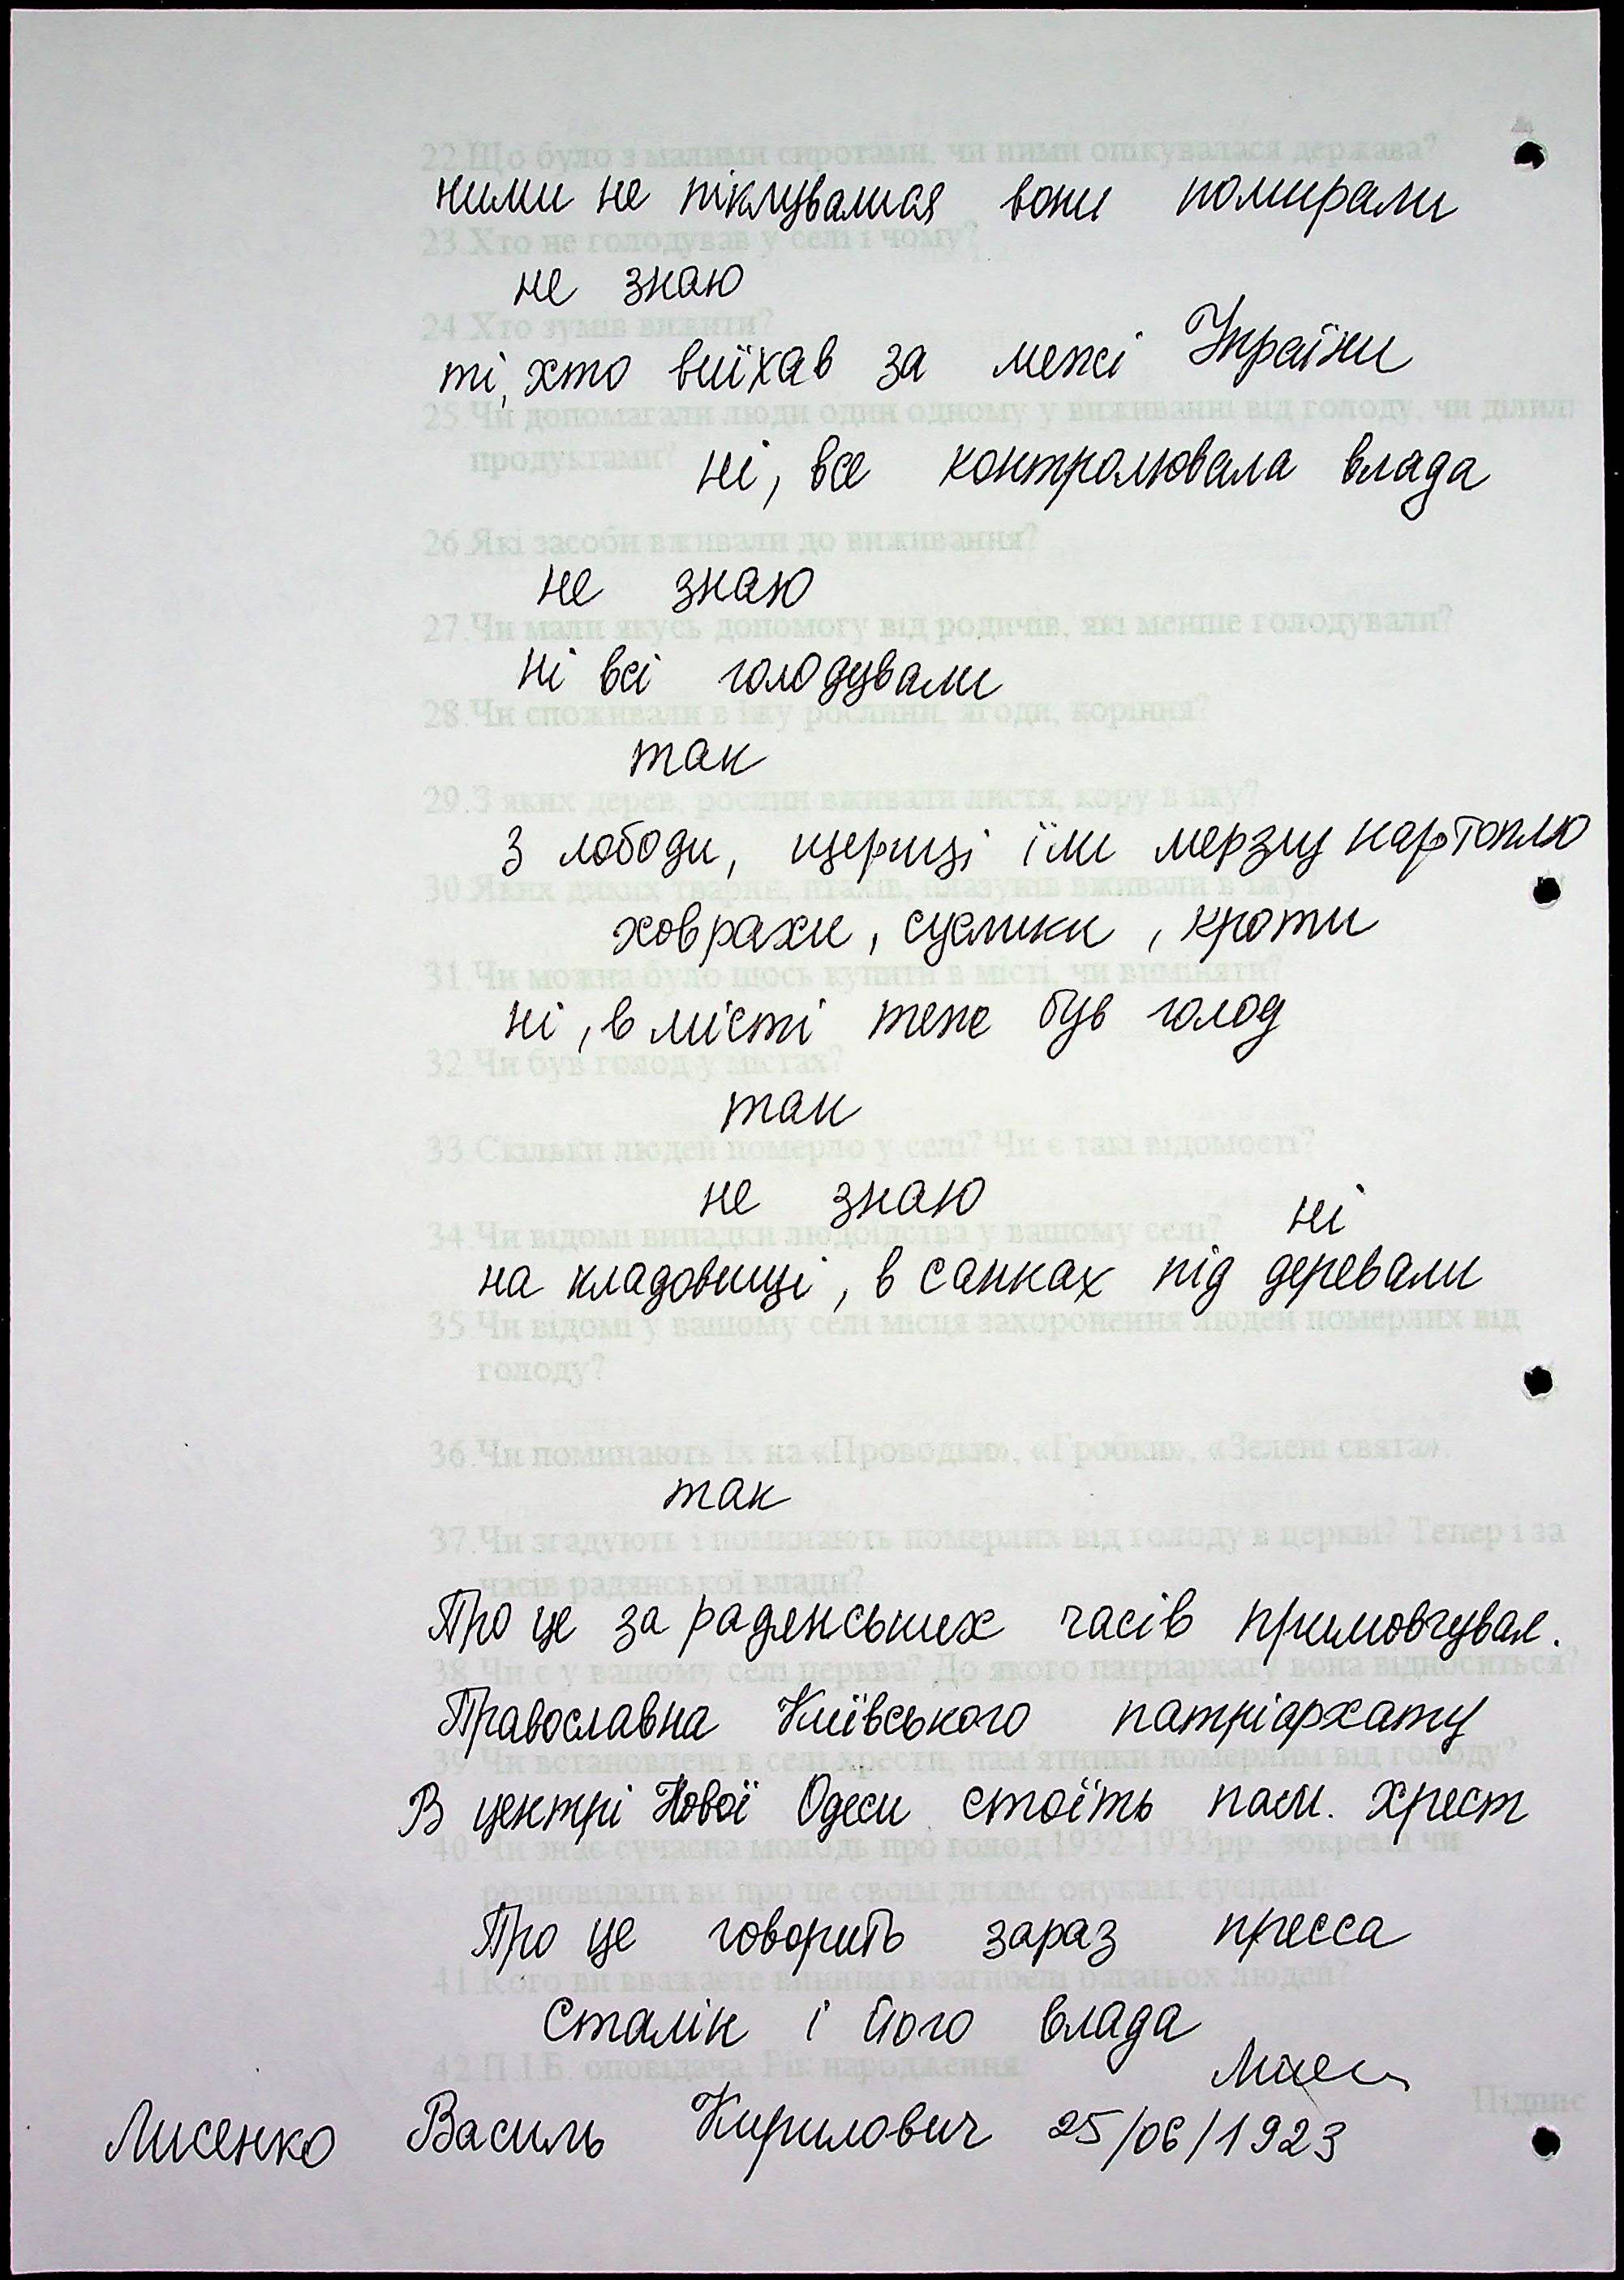 22.Що було з малими сиротами, чи ними опікувалася держава?
ними не піклувалися вони помирали
23.Хто не голодував у селі і чому?
не знаю
24.Хто зумів вижити?
ті, хто виїхав за межі України
25.Чи допомагали люди один одному у виживанні від голоду, чи ділили
продуктами?
ні, все контролювала влада
26.Які засоби вживали до виживання?
не знаю
27.Чи мали якусь допомогу від родичів, які менше голодували?
ні всі голодували
28.Чи споживали в їжу рослини, ягоди, коріння?
так
29.З яких дерев, рослин вживали листя, кору в їжу?
З лободи, щериці їли мерзлу картоплю
30.Яких диких тварин, птахів, плазунів вживали в їжу?
ховрахи, суслики, кроти
31.Чи можна було щось купити в місті, чи виміняти?
ні, в місті теж був голод
32.Чи був голод у містах?
так
33.Скільки людей померло у селі? Чи є такі відомості?
не знаю
34.Чи відомі випадки людоїдства у вашому селі? ні
на кладовищі, в санках під деревами
35.Чи відомі у вашому селі місця захоронення людей померлих від
голоду?
36.Чи поминають їх на «Проводкю», «Гробки», «Зелені свята».
так
37.Чи згадують і поминають померлих від голоду в церкві? Тепер і за
часів радянської влади?
Про це за радянських часів примовчувал.
38.Чи є у вашому селі церква? До якого патріархату вона відноситься?
Православна Київського патріархату
39.Чи встановлені в селі хрести, пам'ятники померлим від голоду?
В центрі Нової Одеси стоїть пам. хрест
40.Чи знає сучасна молодь про голод 1932-1933рр., зокрема чи
розповідали ви про це своїм дітям, онукам, сусідам?
Про це говорить зараз пресса
41.Кого ви вважаєте винним в загибелі багатьох людей?
Сталін і його влада
42.П.І.Б. оповідача. Рік народження
Підпис
Лисенко Василь Кирилович 25/06/1923